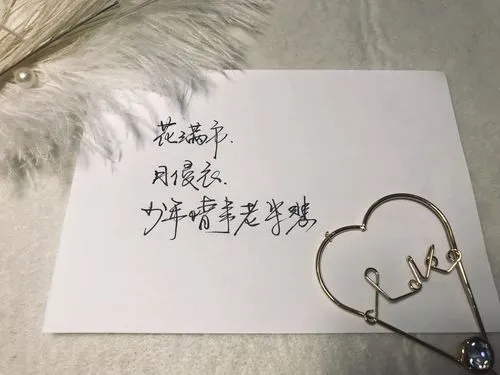 花满市.
月侵衣.
少年情事老来悲
Love